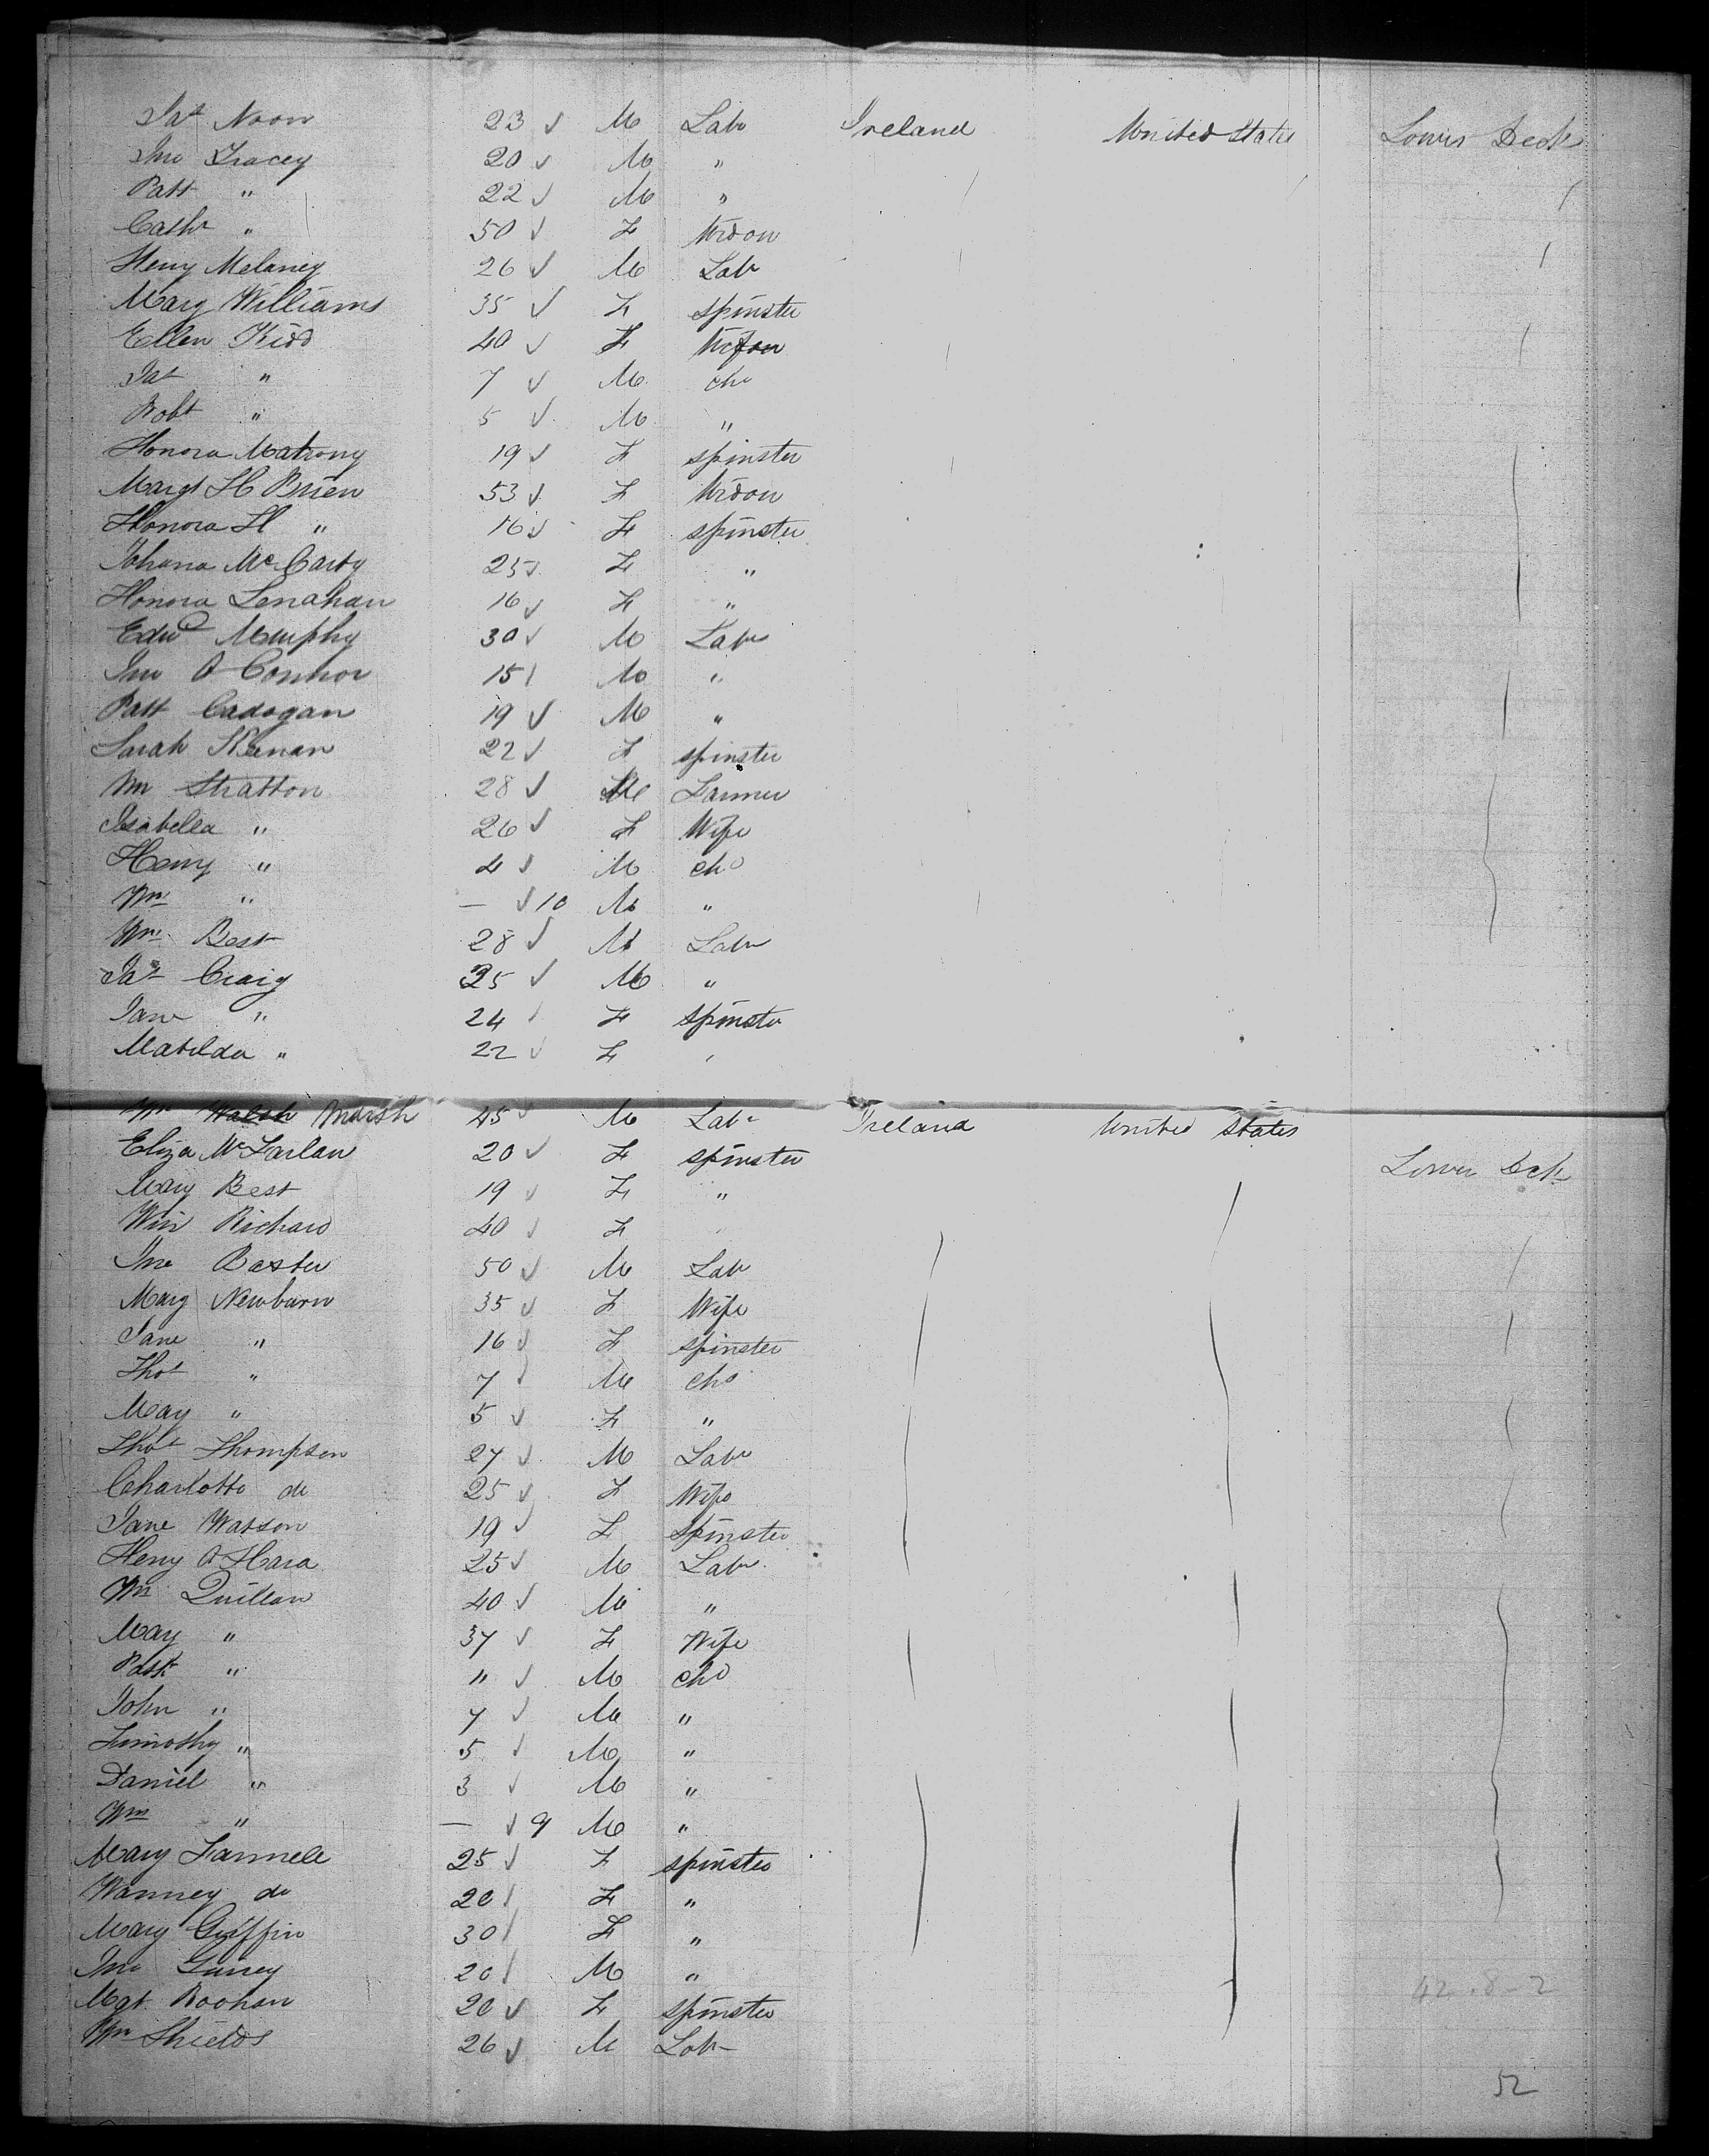 Jas Noon 23 M Labr Ireland United States Lower Deck
Jno Tracey 20 M "
Patt " 22 M "
Cathe " 50 F Widow
Henry Melaney 26 M Labr
Mary Williams 35 F Spinster
Ellen Kidd 40 F
Jas " 7 M chd
Robt " 5 M "
Honora 19 F Spinster
Margt H Brien 53 F Widow
Honora H " 16 F Spinster
Johana McCarty 25 F "
Honora Lenahan 16 F "
Edwd Murphy 30 M Labr
Jno O Connor 15 M "
Patt Cadogan 19 M "
Sarah Keenan 22 F Spinster
Wm Stratton 28 M Farmer
Isabella " 26 F Wife
Henry " 4 M chd
Wm " — 10 M "
Wm Best 28 M Labr
Jas Craig 25 M "
Jane " 24 F Spinster
Matilda " 22 F "
Wm Walsh Marsh 45 M Labr Ireland United States
Eliza McFarlan 20 F Spinster Lower Deck
Mary Best 19 F "
Win Richard 40 F
Jno Baxter 50 M Labr
Mary Newburn 35 F Wife
Jane " 16 F Spinster
Thos " 7 M chd
May " 5 F "
Thos Thompson 27 M Labr
Charlotte do 25 F Wife
Jane Watson 19 F Spinster
Henry O Hara 25 M Labr
Wm Quillan 40 M "
May " 37 F Wife
Patk " 11 M chd
John " 7 M "
Timothy " 5 M "
Daniel " 3 M "
Wm " — 9 M "
Mary 25 F Spinster
do 20 F "
Mary Griffin 30 F "
Jno 20 M "
Mgt Roohan 20 F Spinster
Wm Shields 26 M Labr
42.8-2
52